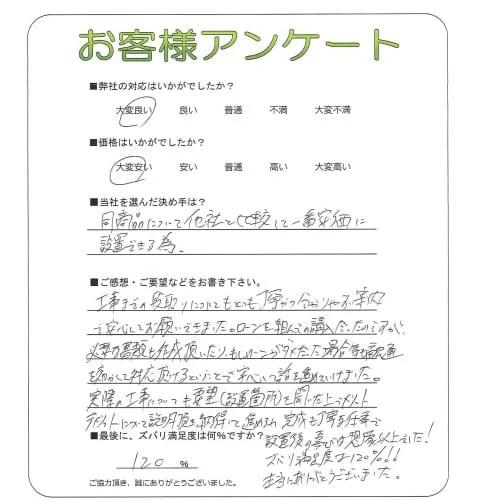 お客様アンケート
■弊社の対応はいかがでしたか?
大変良い 良い 普通 不満 大変不満
■価格はいかがでしたか?
大変安い 安い 普通 高い 大変高い
■当社を選んだ決め手は?
同商品について他社と比較して一番安価に
設置できる為。
■ご感想・ご要望などをお書き下さい。
工事までの段取りについてもとても丁寧かつ分かりやすい案内
で安心してお願いできました。ローンを組んでの購入だったのですが、
必要書類も作成頂いたり、もしローンがダメだった場合
対応頂けるということで安心して話を進めていけました。
実際の工事についても要望(設置箇所)を聞いた上でメリット
デメリットについて説明頂き納得して進められ 完成も丁寧な仕事で
設置後の喜びは想像以上でした!
ズバリ満足度は120%!!!
本当にありがとうございました。
■最後に、ズバリ満足度は何%ですか?
120 %
ご協力頂き、誠にありがとうございました。